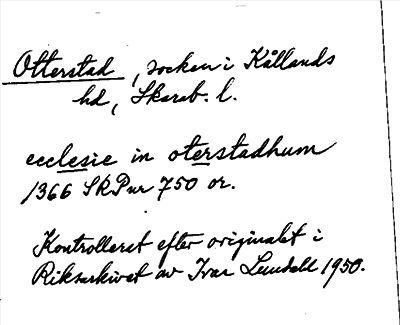 Otterstad, socken i Kållands
hd, Skarab. l.
ecclesie in oterstadhum
1366 SRP nr 750 or.
Kontrollerat efter originalet i
Riksarkivet av Ivar Lundahl 1950.